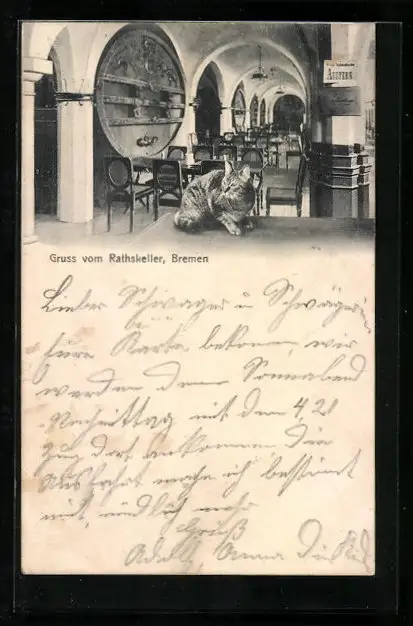 AUSTERN
Gruss vom Rathskeller, Bremen
Lieber Schwager u Schwägerin
Eure Karte bekommen wir
werden den Sonnabend
Nachmittag mit dem 4,21
Zug dort ankommen, die
Ausfahrt mache ich bestimmt
mit, mündlich mehr
Gruß
Adolf, Anna